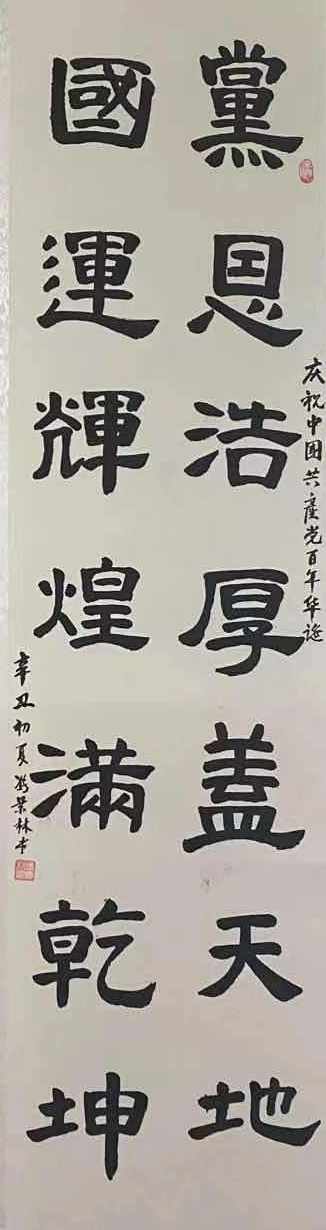 黨恩浩厚蓋天地
國運輝煌滿乾坤
庆祝中国共產党百年华诞
辛丑初夏景林书